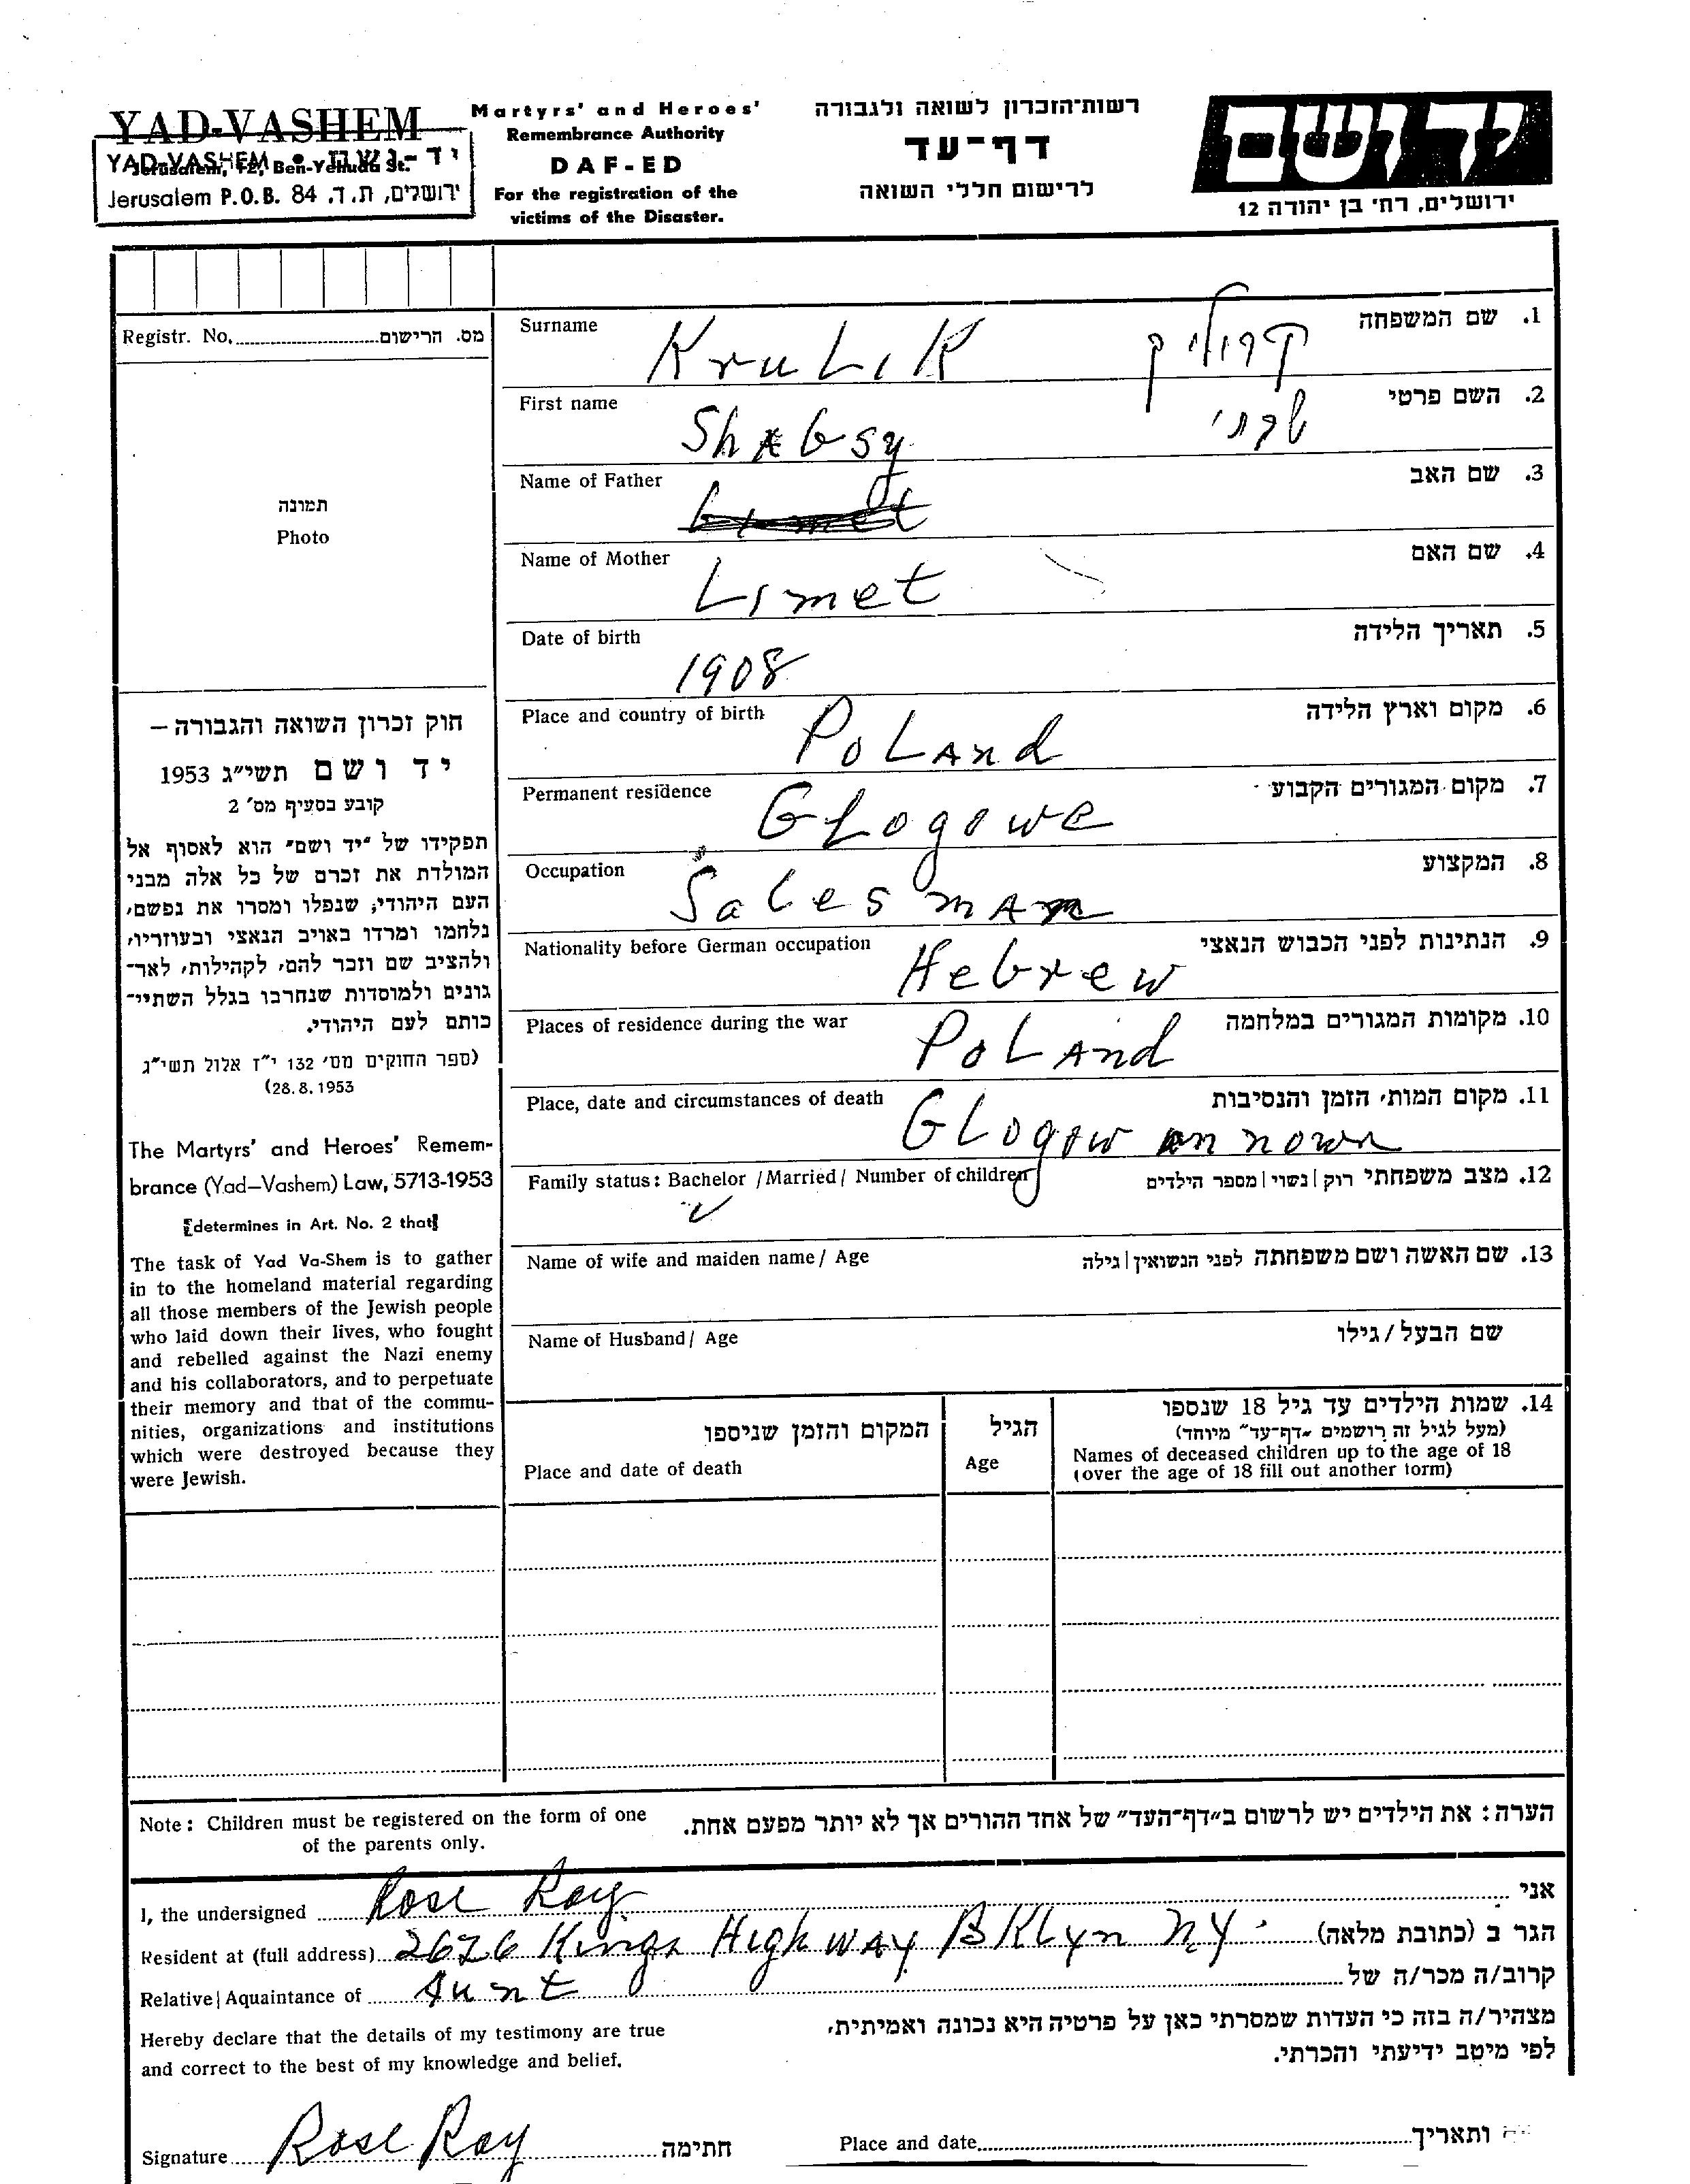 YAD-VASHEM
Jerusalem, 12, Ben-Yehuda St.
YAD-VASHEM • יד-ושם
Jerusalem P.O.B. 84 .ירושלים, ת.ד
Martyrs' and Heroes'
Remembrance Authority
DAF-ED
For the registration of the
victims of the Disaster.
רשות־הזכרון לשואה ולגבורה
דף־עד
לרישום חללי השואה
יד ושם
ירושלים, רח׳ בן יהודה 12
Registr. No. מס. הרישום
תמונה
Photo
חוק זכרון השואה והגבורה –
יד ושם תשי״ג 1953
קובע בסעיף מס׳ 2
תפקידו של ״יד ושם״ הוא לאסוף אל
המולדת את זכרם של כל אלה מבני
העם היהודי, שנפלו ומסרו את נפשם,
נלחמו ומרדו באויב הנאצי ובעוזריו,
ולהציב שם וזכר להם, לקהילות, לאר־
גונים ולמוסדות שנחרבו בגלל השתיי־
כותם לעם היהודי.
(ספר החוקים מס׳ 132 י״ז אלול תשי״ג
28.8.1953)
The Martyrs' and Heroes' Remem-
brance (Yad–Vashem) Law, 5713-1953
[determines in Art. No. 2 that]
The task of Yad Va-Shem is to gather
in to the homeland material regarding
all those members of the Jewish people
who laid down their lives, who fought
and rebelled against the Nazi enemy
and his collaborators, and to perpetuate
their memory and that of the commu-
nities, organizations and institutions
which were destroyed because they
were Jewish.
Surname 1. שם המשפחה
KruLiK קרוליק
First name 2. השם פרטי
Shabsy שבתי
Name of Father 3. שם האב
Name of Mother 4. שם האם
Limet
Date of birth 5. תאריך הלידה
1908
Place and country of birth 6. מקום וארץ הלידה
PoLAnd
Permanent residence 7. מקום המגורים הקבוע
GLogowe
Occupation 8. המקצוע
Salesman
Nationality before German occupation 9. הנתינות לפני הכבוש הנאצי
Hebrew
Places of residence during the war 10. מקומות המגורים במלחמה
PoLAnd
Place, date and circumstances of death 11. מקום המות, הזמן והנסיבות
GLogow un nown
Family status: Bachelor / Married / Number of children 12. מצב משפחתי רוק | נשוי | מספר הילדים
✓
Name of wife and maiden name / Age 13. שם האשה ושם משפחתה לפני הנשואין | גילה
Name of Husband / Age שם הבעל / גילו
14. שמות הילדים עד גיל 18 שנספו
(מעל לגיל זה רושמים ״דף־עד״ מיוחד)
Names of deceased children up to the age of 18
(over the age of 18 fill out another form)
הגיל
Age
המקום והזמן שניספו
Place and date of death
Note: Children must be registered on the form of one
of the parents only.
הערה: את הילדים יש לרשום ב״דף־העד״ של אחד ההורים אך לא יותר מפעם אחת.
I, the undersigned Rose Ray אני
Resident at (full address) 2626 Kings Highway BKLyn NY. הגר ב (כתובת מלאה)
Relative | Aquaintance of Aunt קרוב/ה מכר/ה של
Hereby declare that the details of my testimony are true
and correct to the best of my knowledge and belief.
מצהיר/ה בזה כי העדות שמסרתי כאן על פרטיה היא נכונה ואמיתית,
לפי מיטב ידיעתי והכרתי.
Signature Rose Ray חתימה Place and date ותאריך